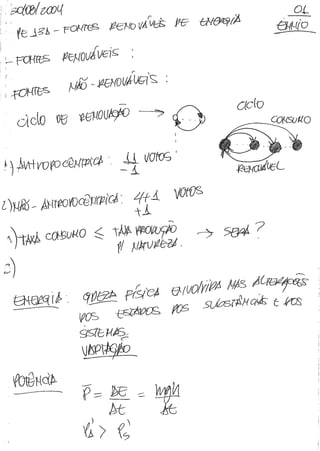 20/08/2004
01
PE 131 - FONTES RENOVÁVEIS DE ENERGIA
ENNIO
- FONTES RENOVÁVEIS :
FONTES NÃO-RENOVÁVEIS :
CICLO DE RENOVAÇÃO →
CICLO
CONSUMO
RENOVÁVEL
1) ANTROPOCÊNTRICA: 11 VOTOS
-1
2) NÃO-ANTROPOCÊNTRICA: 4+1 VOTOS
+1
1) TAXA CONSUMO ≤ TAXA PRODUÇÃO → SERÁ?
P/ NATUREZA.
2)
ENERGIA: GDEZA FÍSICA ENVOLVIDA NAS ALTERAÇÕES
DOS ESTADOS DOS SUBSTÂNCIAS E DOS
SISTEMAS.
VARIAÇÃO
POTÊNCIA
P̄ = ΔE = mgh
Δt Δt